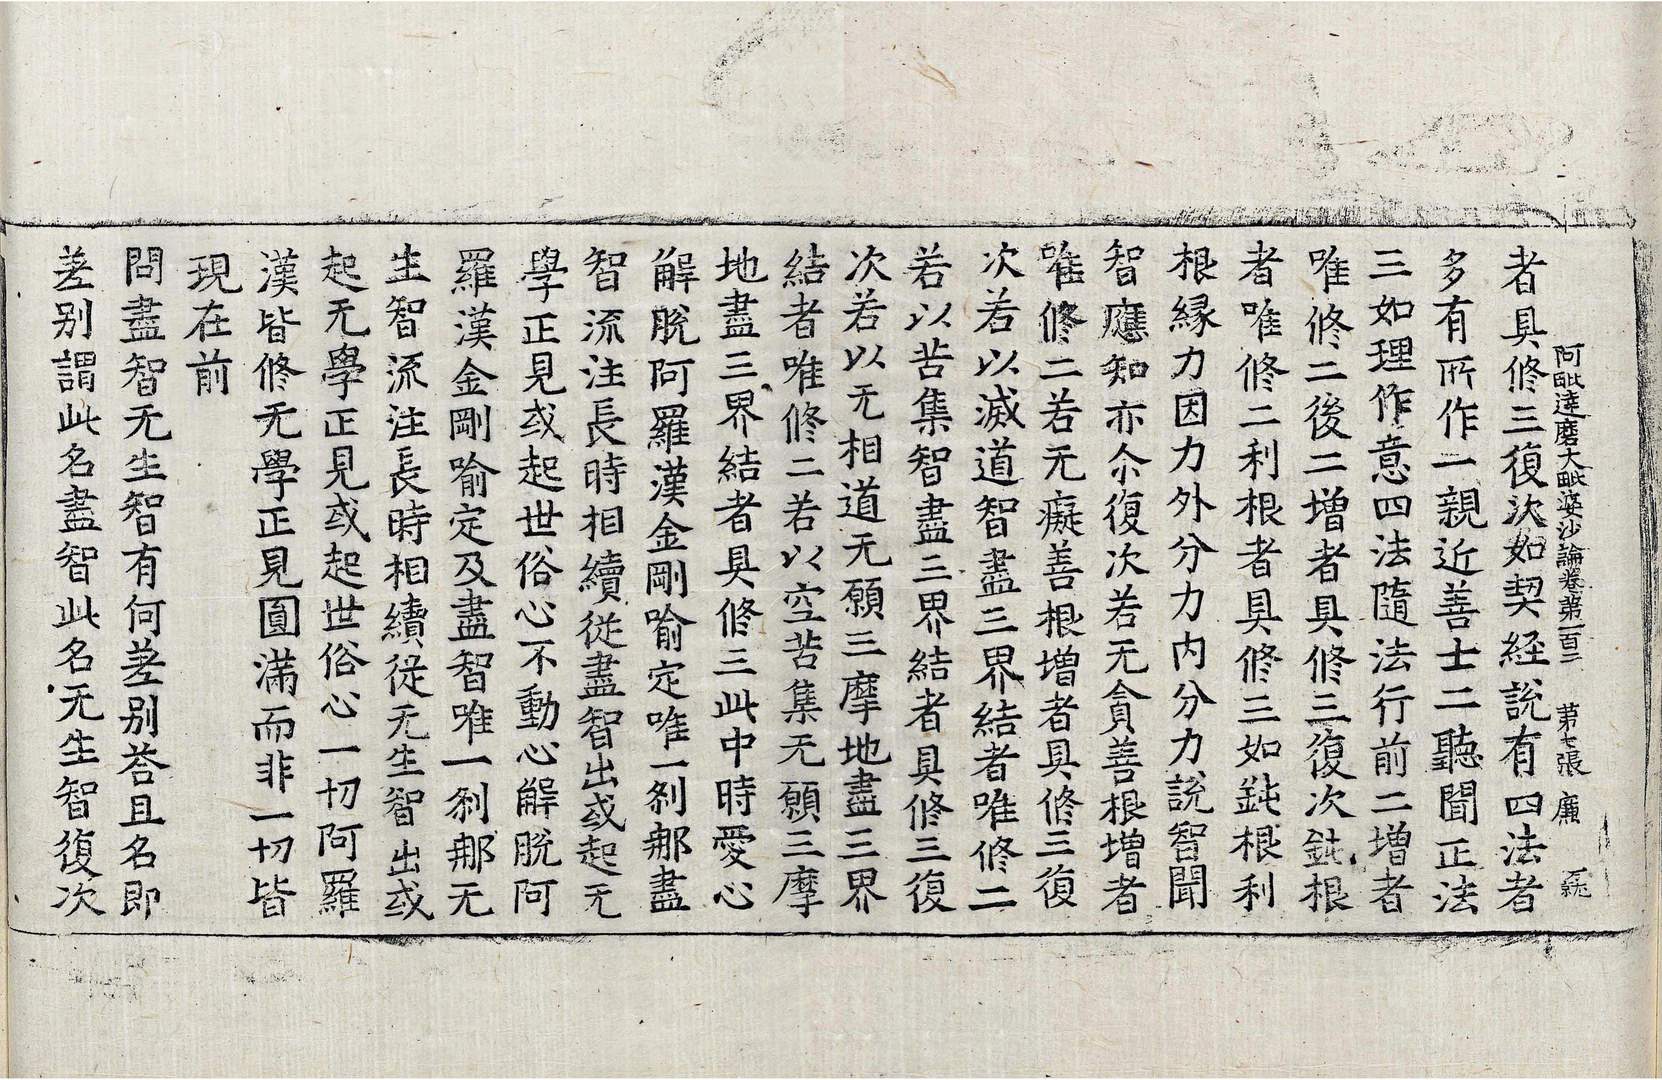 阿毗達磨大毗婆沙論卷第一百二　第七張　廉
者具修三復次如契經說有四法者
多有所作一親近善士二聽聞正法
三如理作意四法隨法行前二增者
唯修二後二增者具修三復次鈍根
者唯修二利根者具修三如鈍根利
根緣力因力外分力內分力說智聞
智應知亦尒復次若无貪善根增者
唯修二若无癡善根增者具修三復
次若以滅道智盡三界結者唯修二
若以苦集智盡三界結者具修三復
次若以无相道无願三摩地盡三界
結者唯修二若以空苦集无願三摩
地盡三界結者具修三此中時愛心
解脫阿羅漢金剛喻定唯一剎那盡
智流注長時相續從盡智出或起无
學正見或起世俗心不動心解脫阿
羅漢金剛喻定及盡智唯一剎那无
生智流注長時相續從无生智出或
起无學正見或起世俗心一切阿羅
漢皆修无學正見圓滿而非一切皆
現在前
問盡智无生智有何差別荅且名即
差別謂此名盡智此名无生智復次